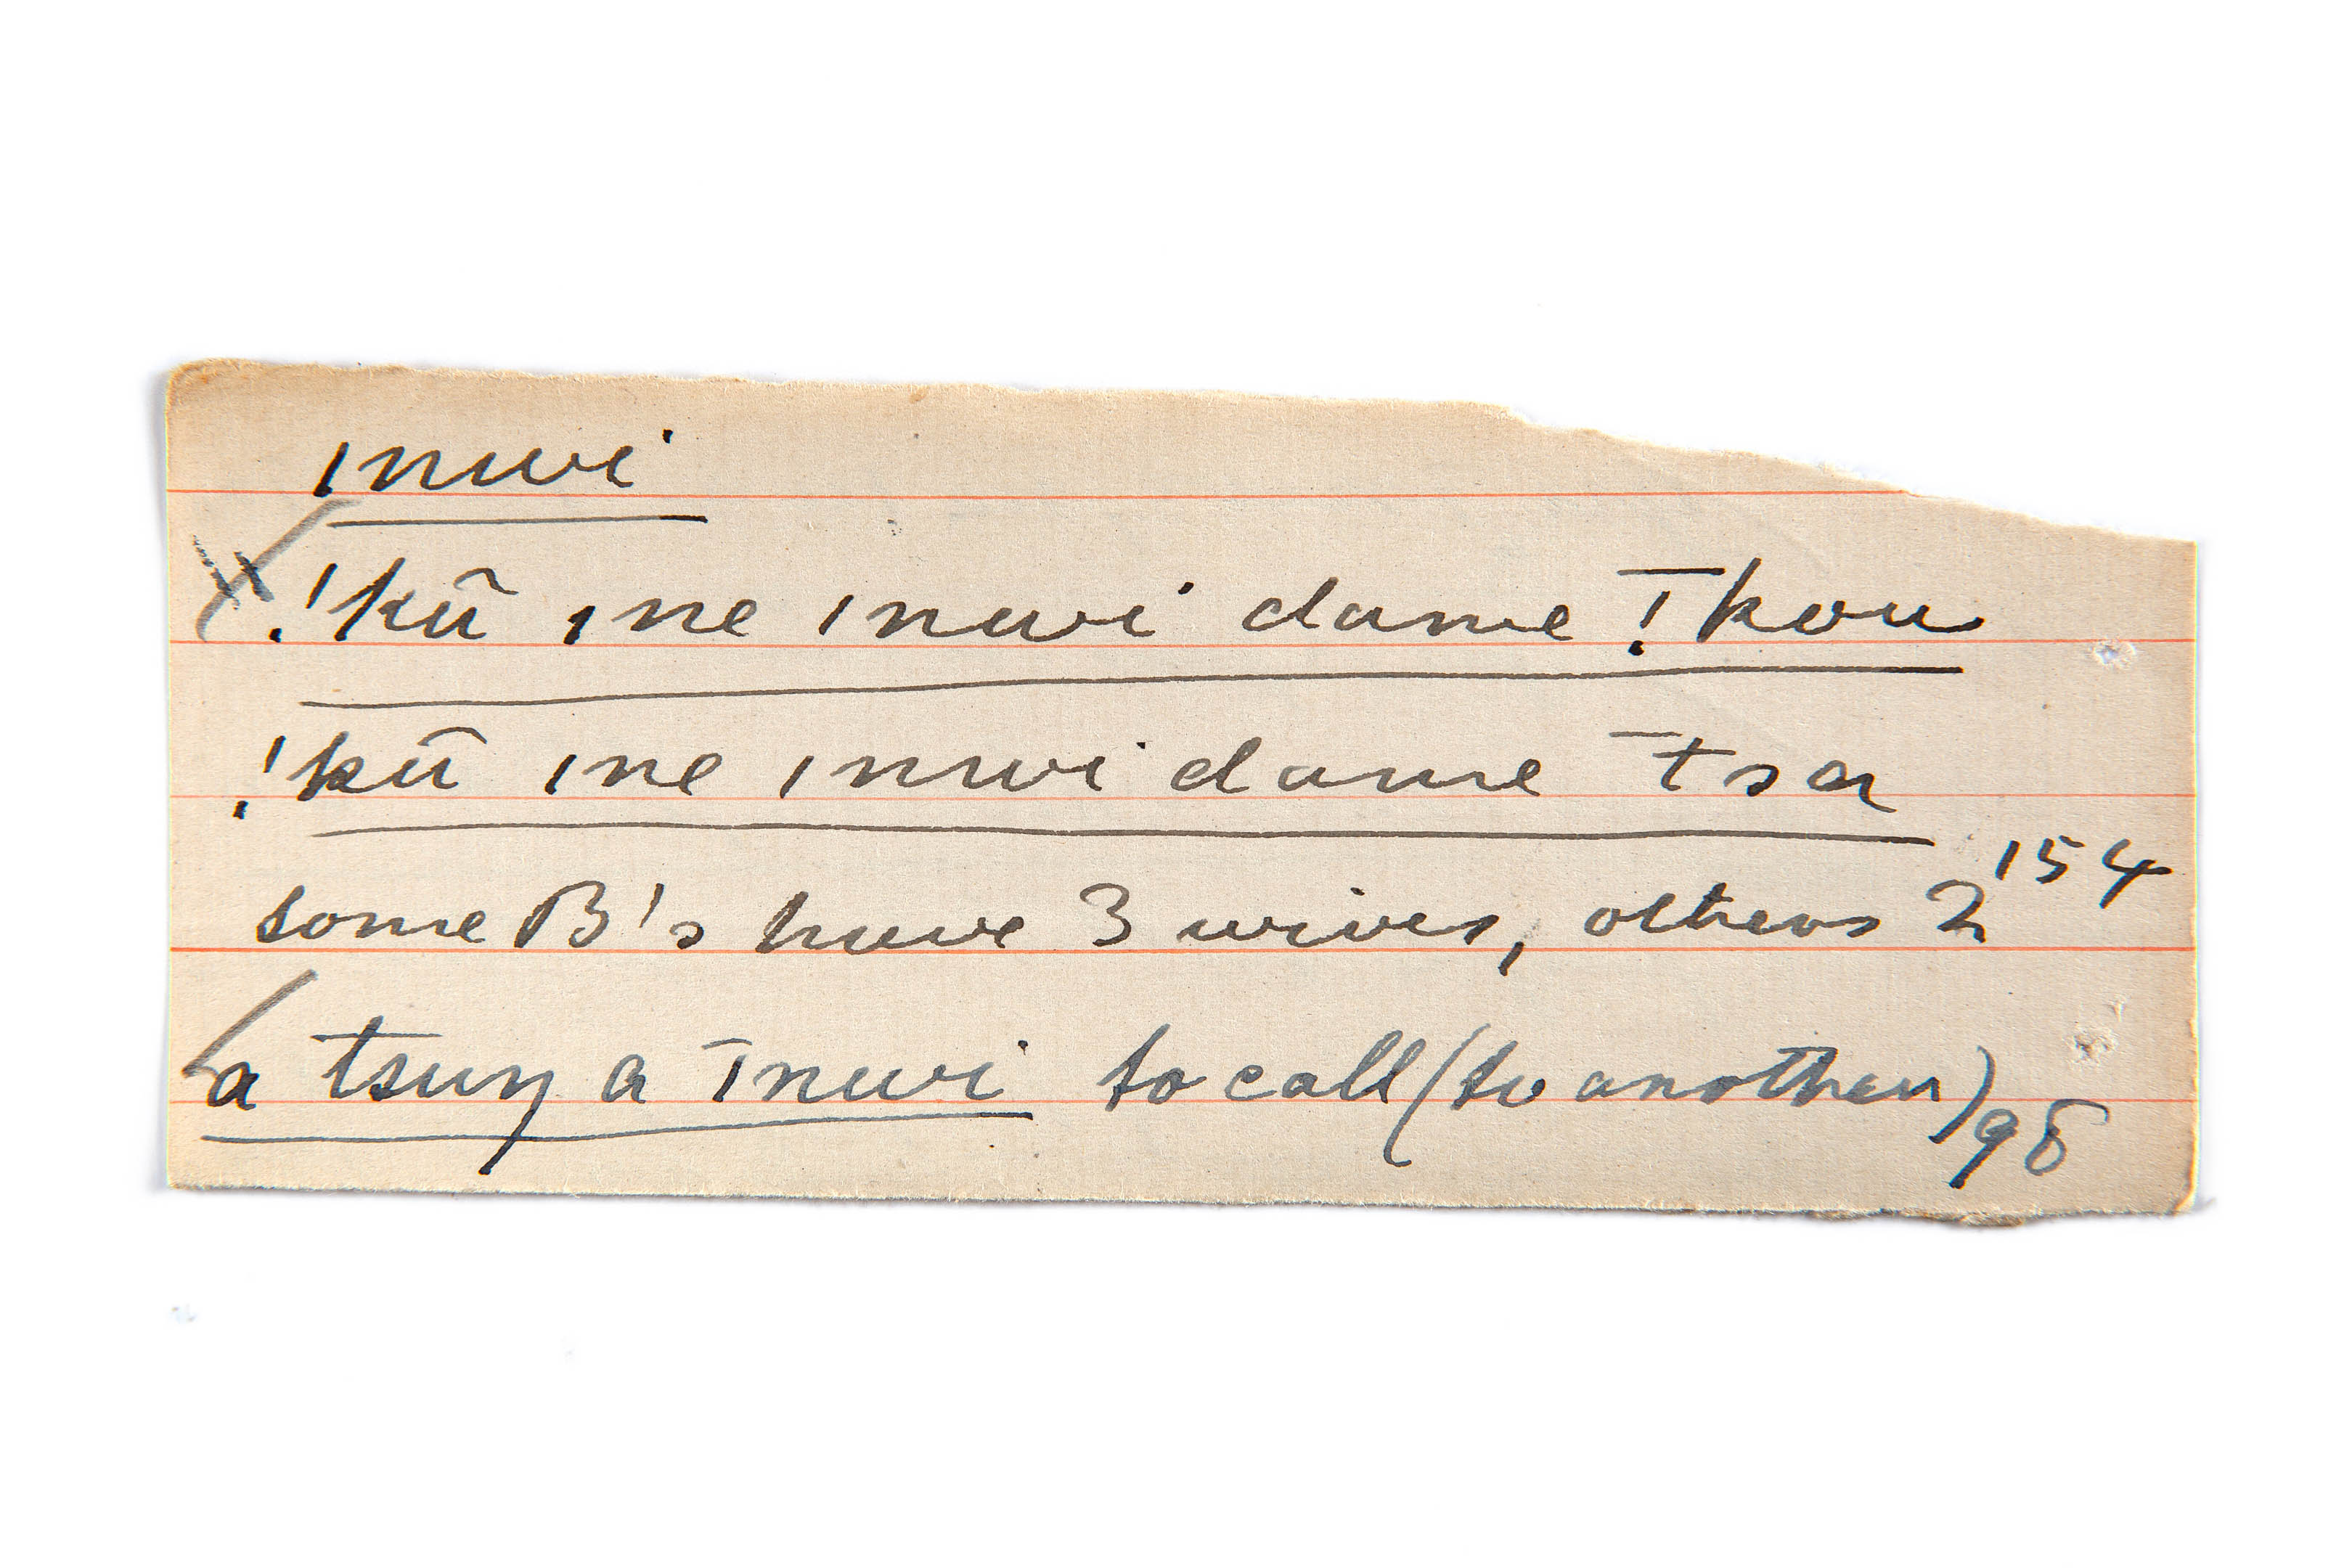 ınwi
!kū ıne ınwi dame ˉ!kou
!kū ıne ınwi dame ˉtsa
some B's have 3 wives, others 2 154
a tsuŋ a ˉınwi to call (to another) 98